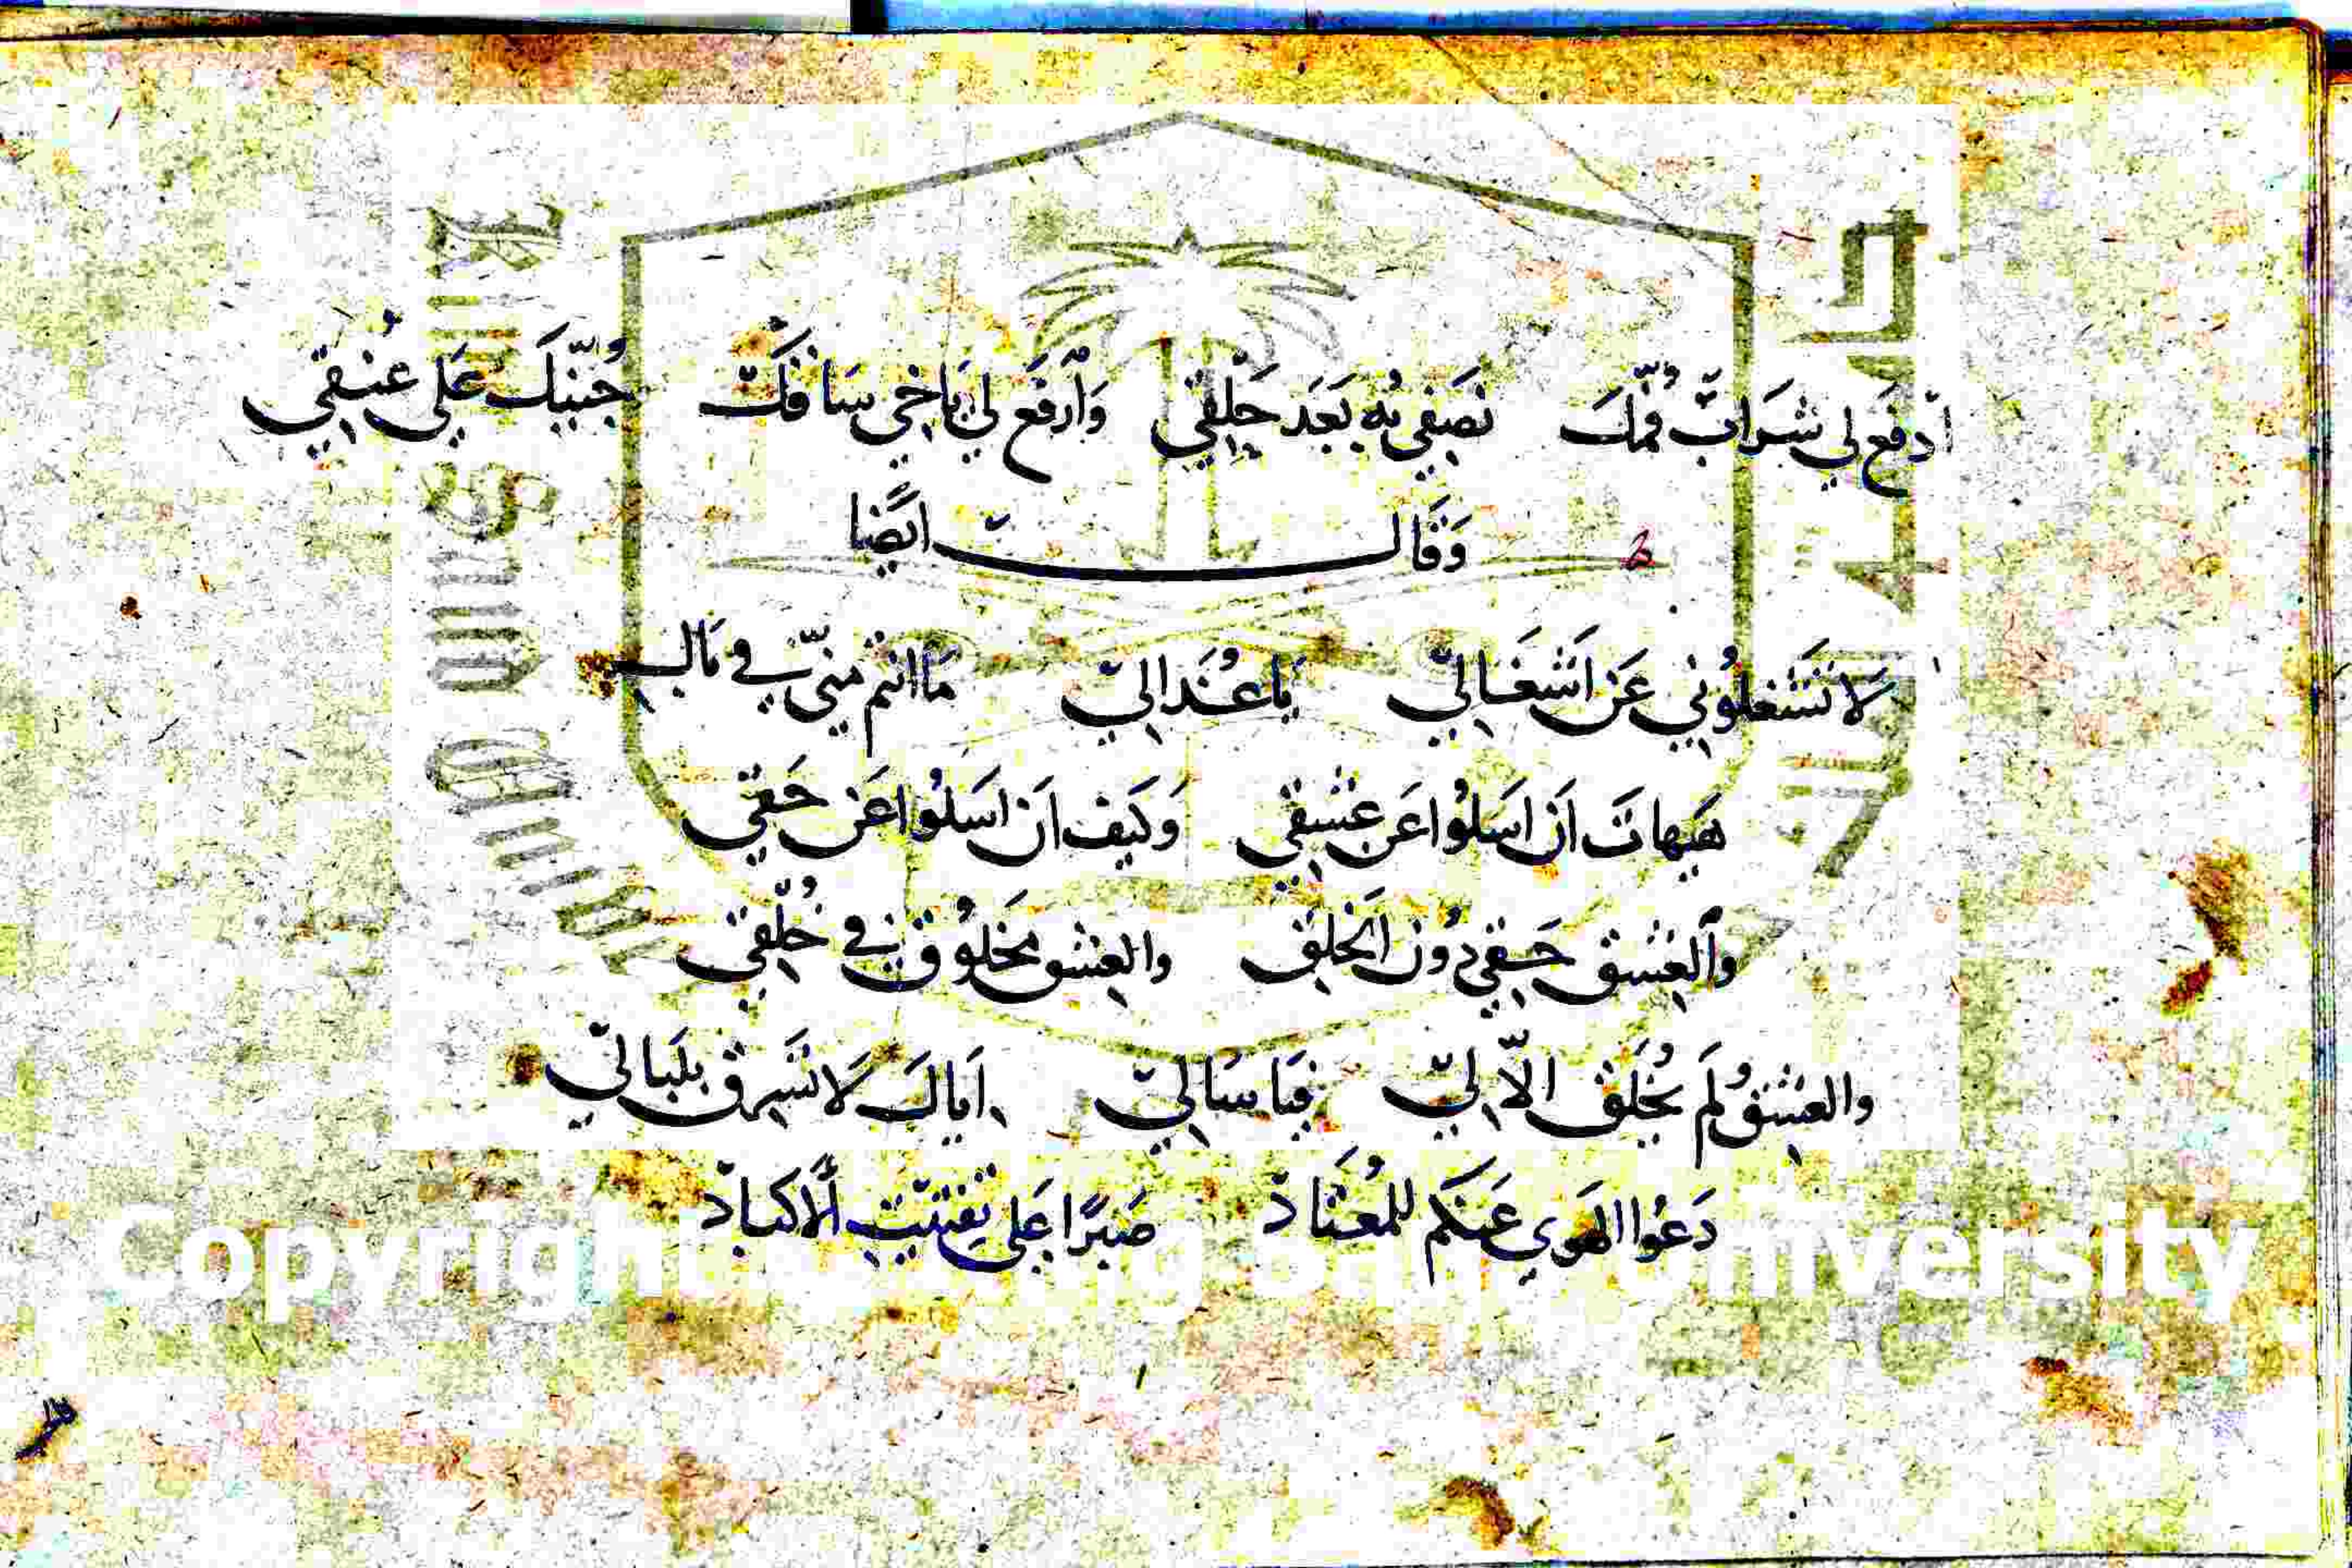 اَدفَع لي شَرَابّ فُمّكَ نصَفي بُه بَعَد حَلِقي وَاَرفَع لي يَاخي سَافَكّ جُنّبكَ عَلى عُنُقي
وَقَالَــــتّ ايَضًا
لَا تَشغلوُني عَن اَشغَالِيّ يَا عُذَالِيّ مَا انتم منيّ في بَالِي
هَيهاتَ اَن اسَلوُا عَن عشقي وَكيَف اَن اسَلوُا عَن حَقي
وَاَلعشق حَقي دُون اَلخلق والعشق مَخلوُق في خُلقي
والعشق لَم يُخلَق الّا لِيّ فيَا سَالِيّ اَياكَ لَا تَسرق بلبَاليّ
دَعوُا الهَوي عَنكم للمُعتَادّ صَبرًا عَلى تفتيّت اَلَاكبادّ
Copyright © King Saud University